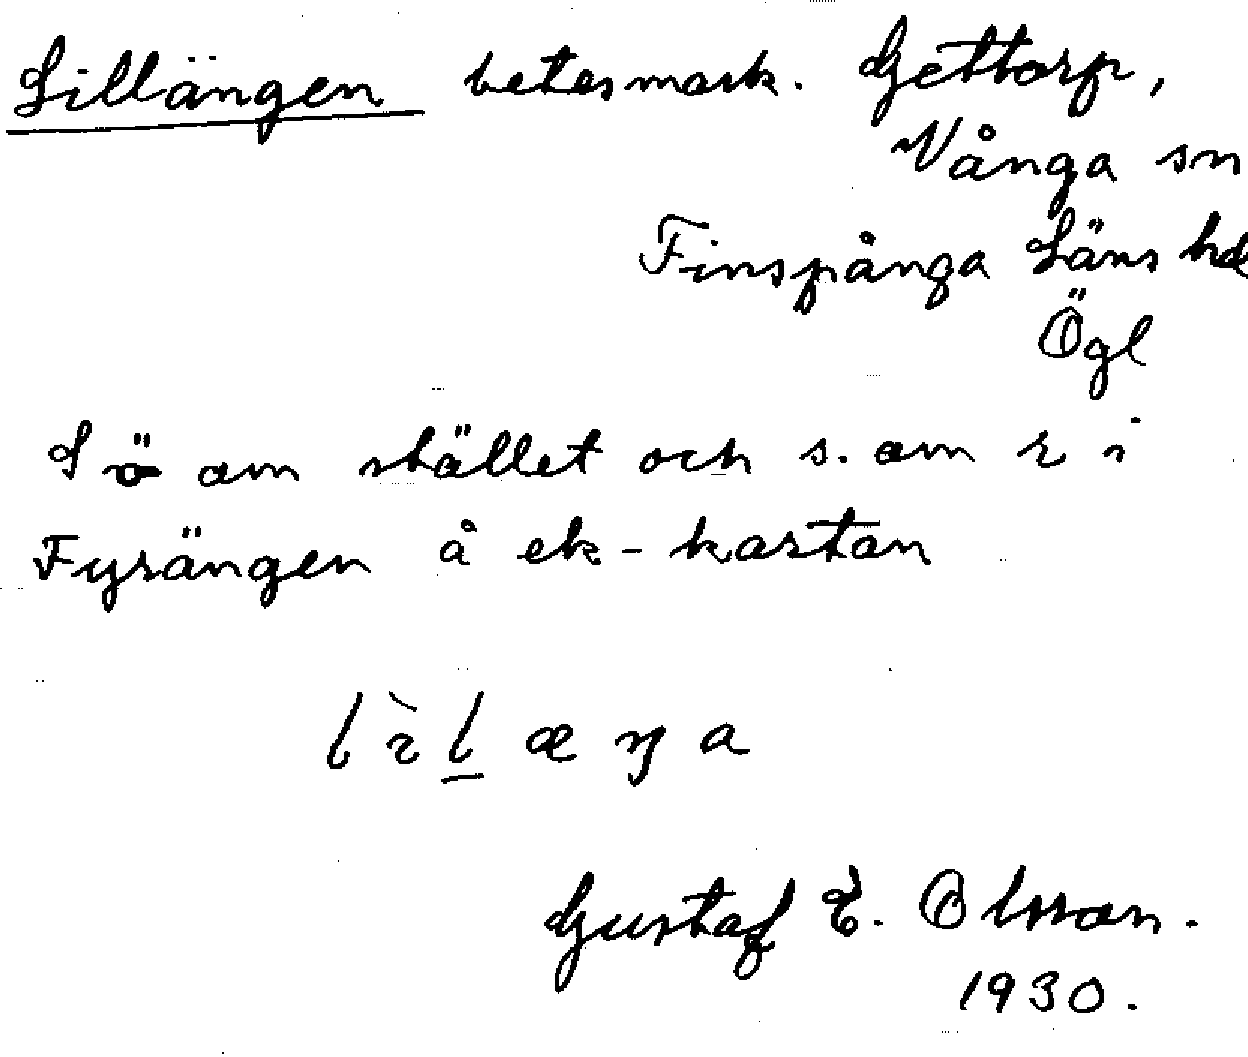 Lillängen betesmark. Gettorp,
Vånga sn
Finspånga Läns hd
Ögl
L ö om stället och s. om r i
Fyrängen å ek-kartan
lìlæŋa
Gustaf E. Olsson.
1930.